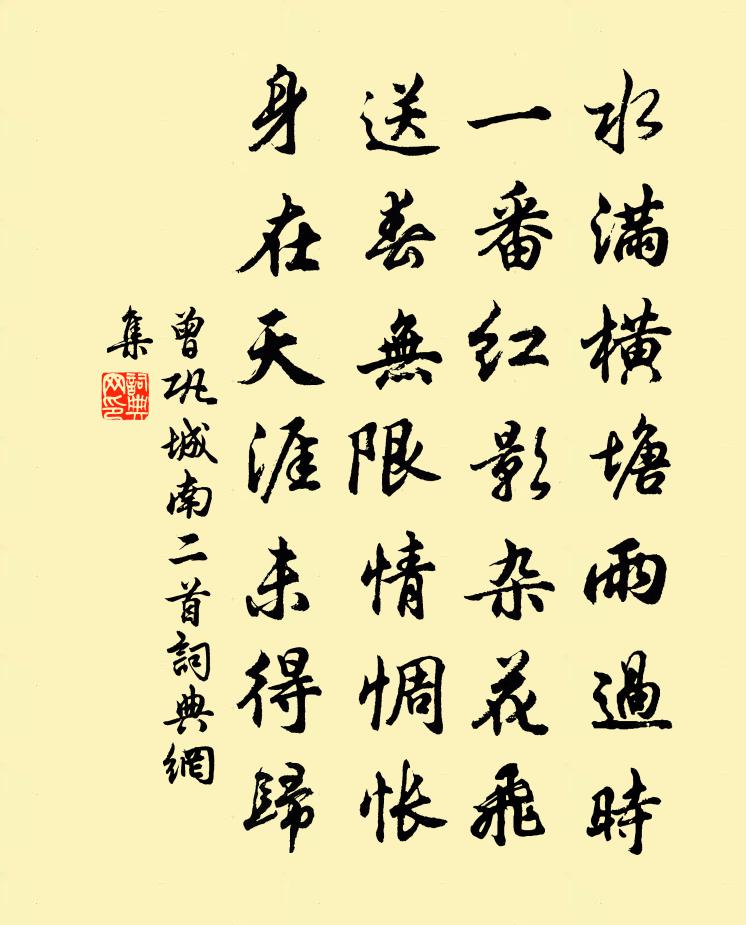 水满横塘雨過時
一番红影杂花飛
送春無限情惆怅
身在天涯未得歸
曾巩城南二首詞典網
集
詞典
网印